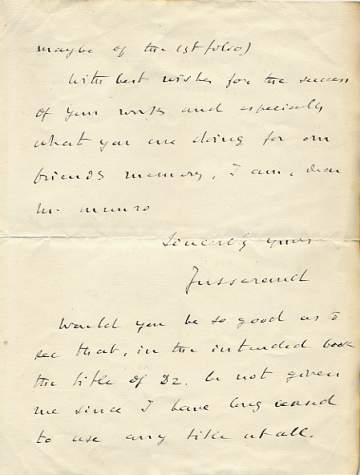 maybe of the 1st folio)
With best wishes for the success
of your works and especially
what you are doing for our
friend's memory, I am, dear
Mr. Munro
Sincerely yours
Jusserand
Would you be so good as to
see that, in the intended book
the title of Dr. be not given
me since I have long ceased
to use any title at all.